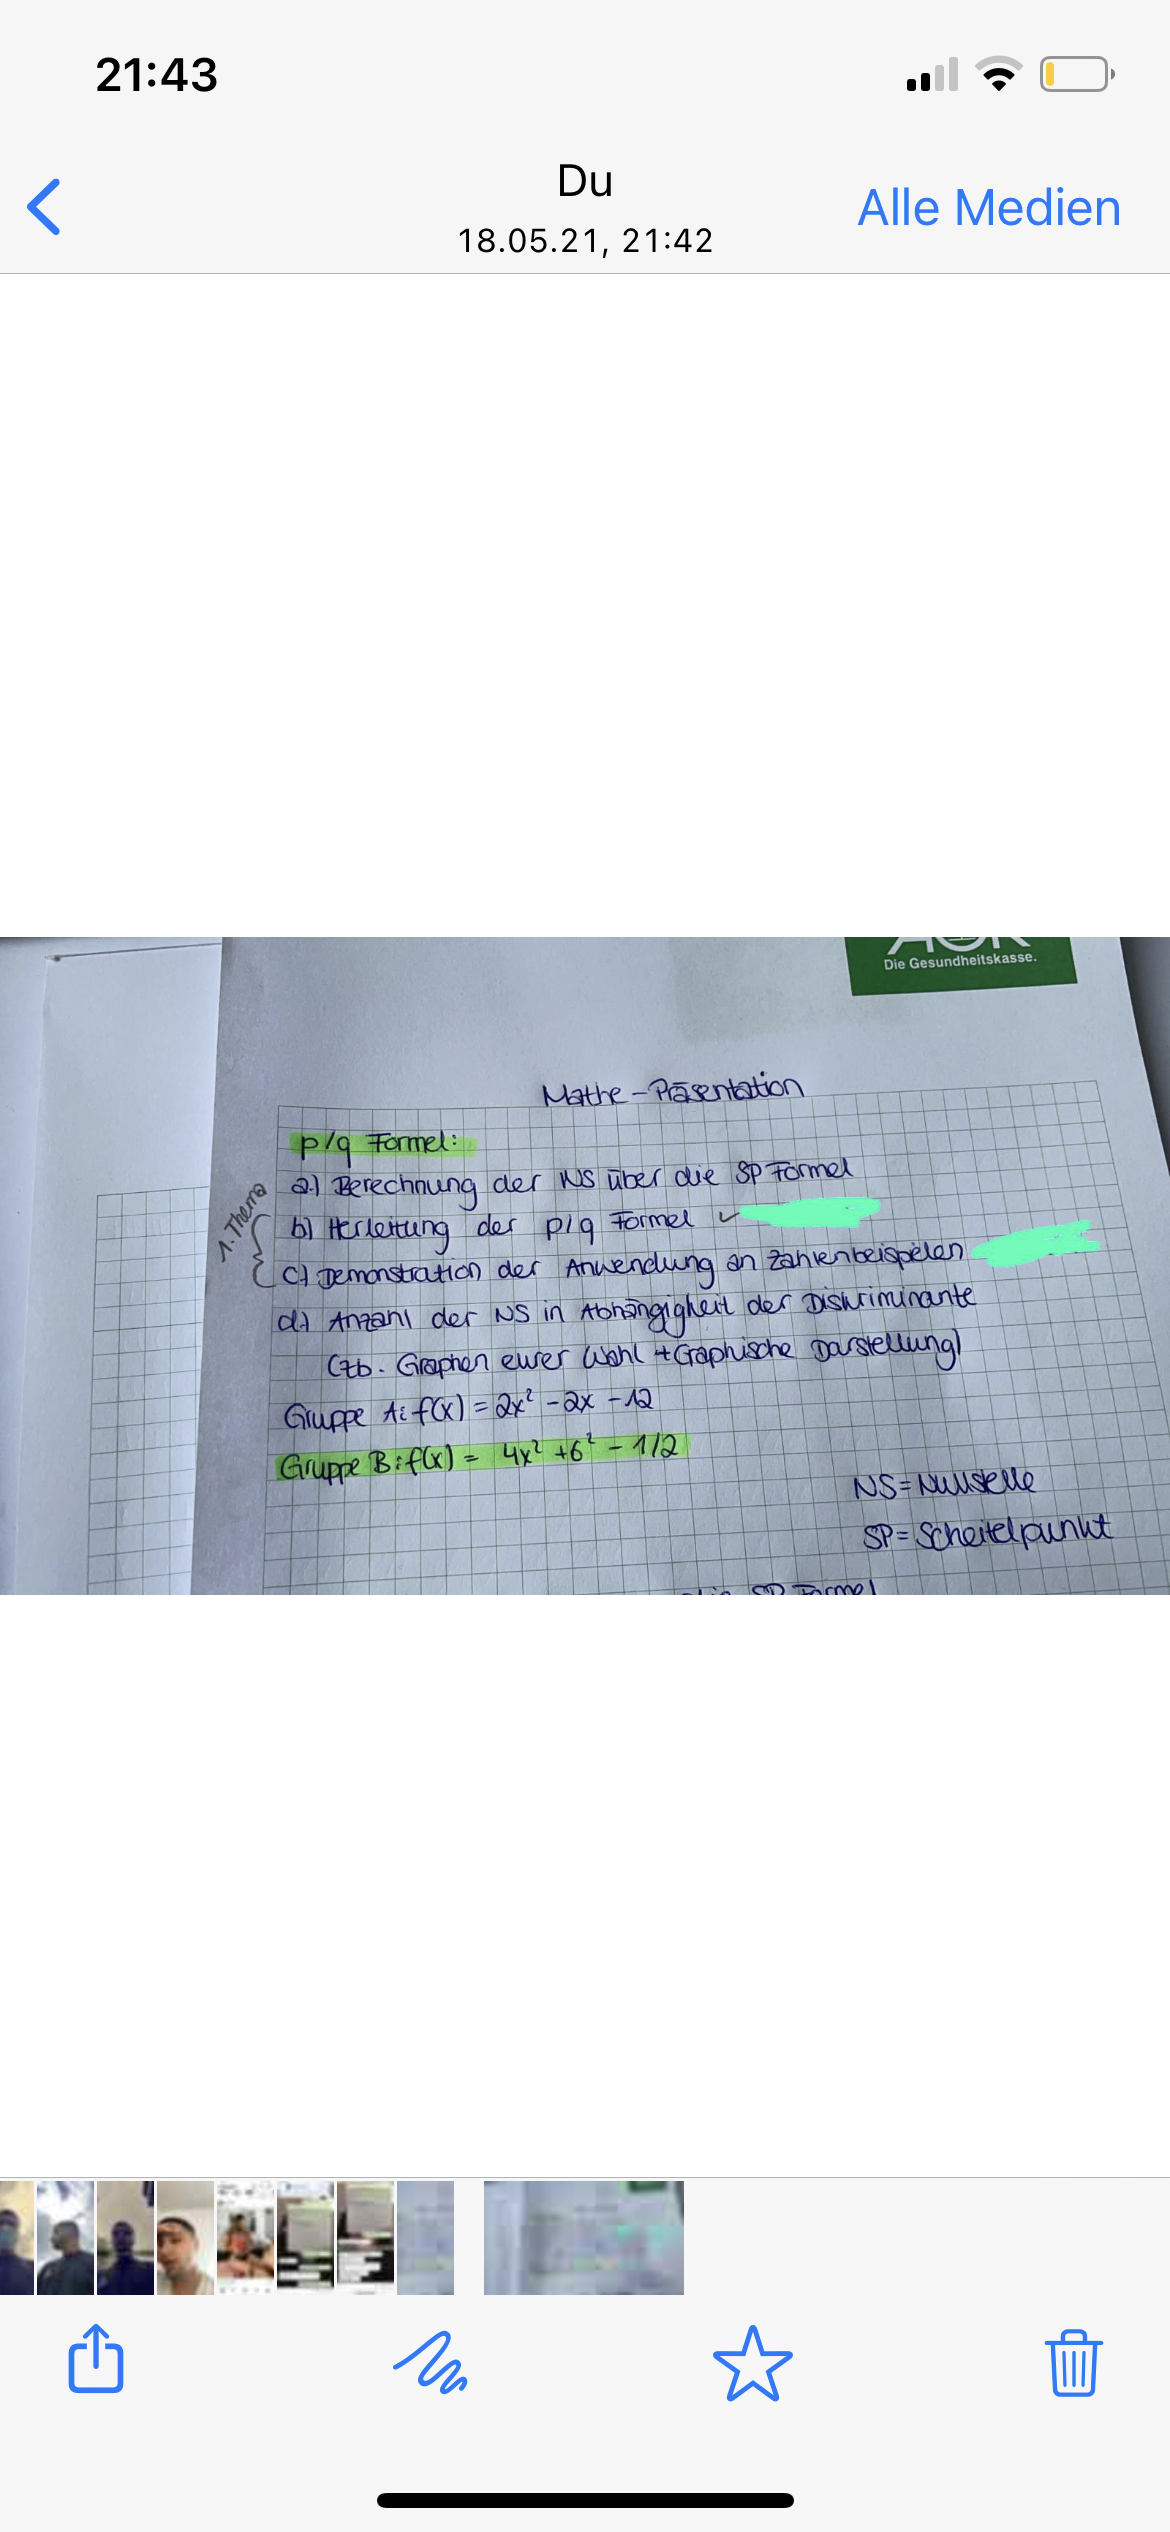 21:43
Du
18.05.21, 21:42
Alle Medien
Die Gesundheitskasse.
Mathe-Präsentation
p/q Formel:
a.) Berechnung der NS über die SP Formel
1. Thema
b) Herleitung der p/q Formel ✓
c) Demonstration der Anwendung an Zahlenbeispielen
d.) Anzahl der NS in Abhängigkeit der Diskriminante
(zb. Graphen eurer Wahl + Graphische Darstellung)
Gruppe A: f(x) = 2x² - 2x - 12
Gruppe B: f(x) = 4x² + 6² - 1/2
NS = Nullstelle
SP = Scheitelpunkt
SP Formel